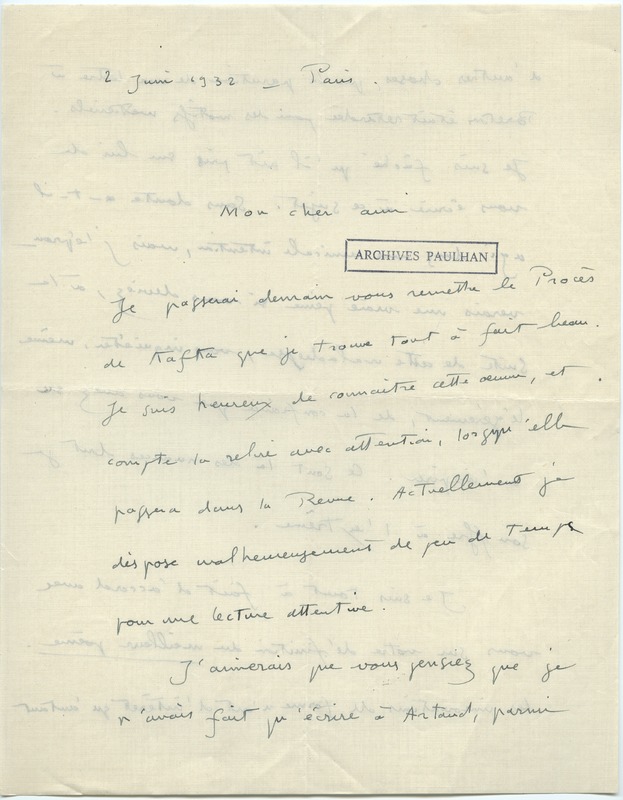 2 Juin 1932 — Paris.
Mon cher ami
ARCHIVES PAULHAN
Je passerai demain vous remettre le Procès
de Kafka que je trouve tout à fait beau.
Je suis heureux de connaître cette œuvre, et
compte la relire avec attention, lorsqu'elle
passera dans la Revue. Actuellement je
dispose malheureusement de peu de temps
pour une lecture attentive.
J'aimerais que vous pensiez que je
n'avais fait qu'écrire à Artaud, parmi